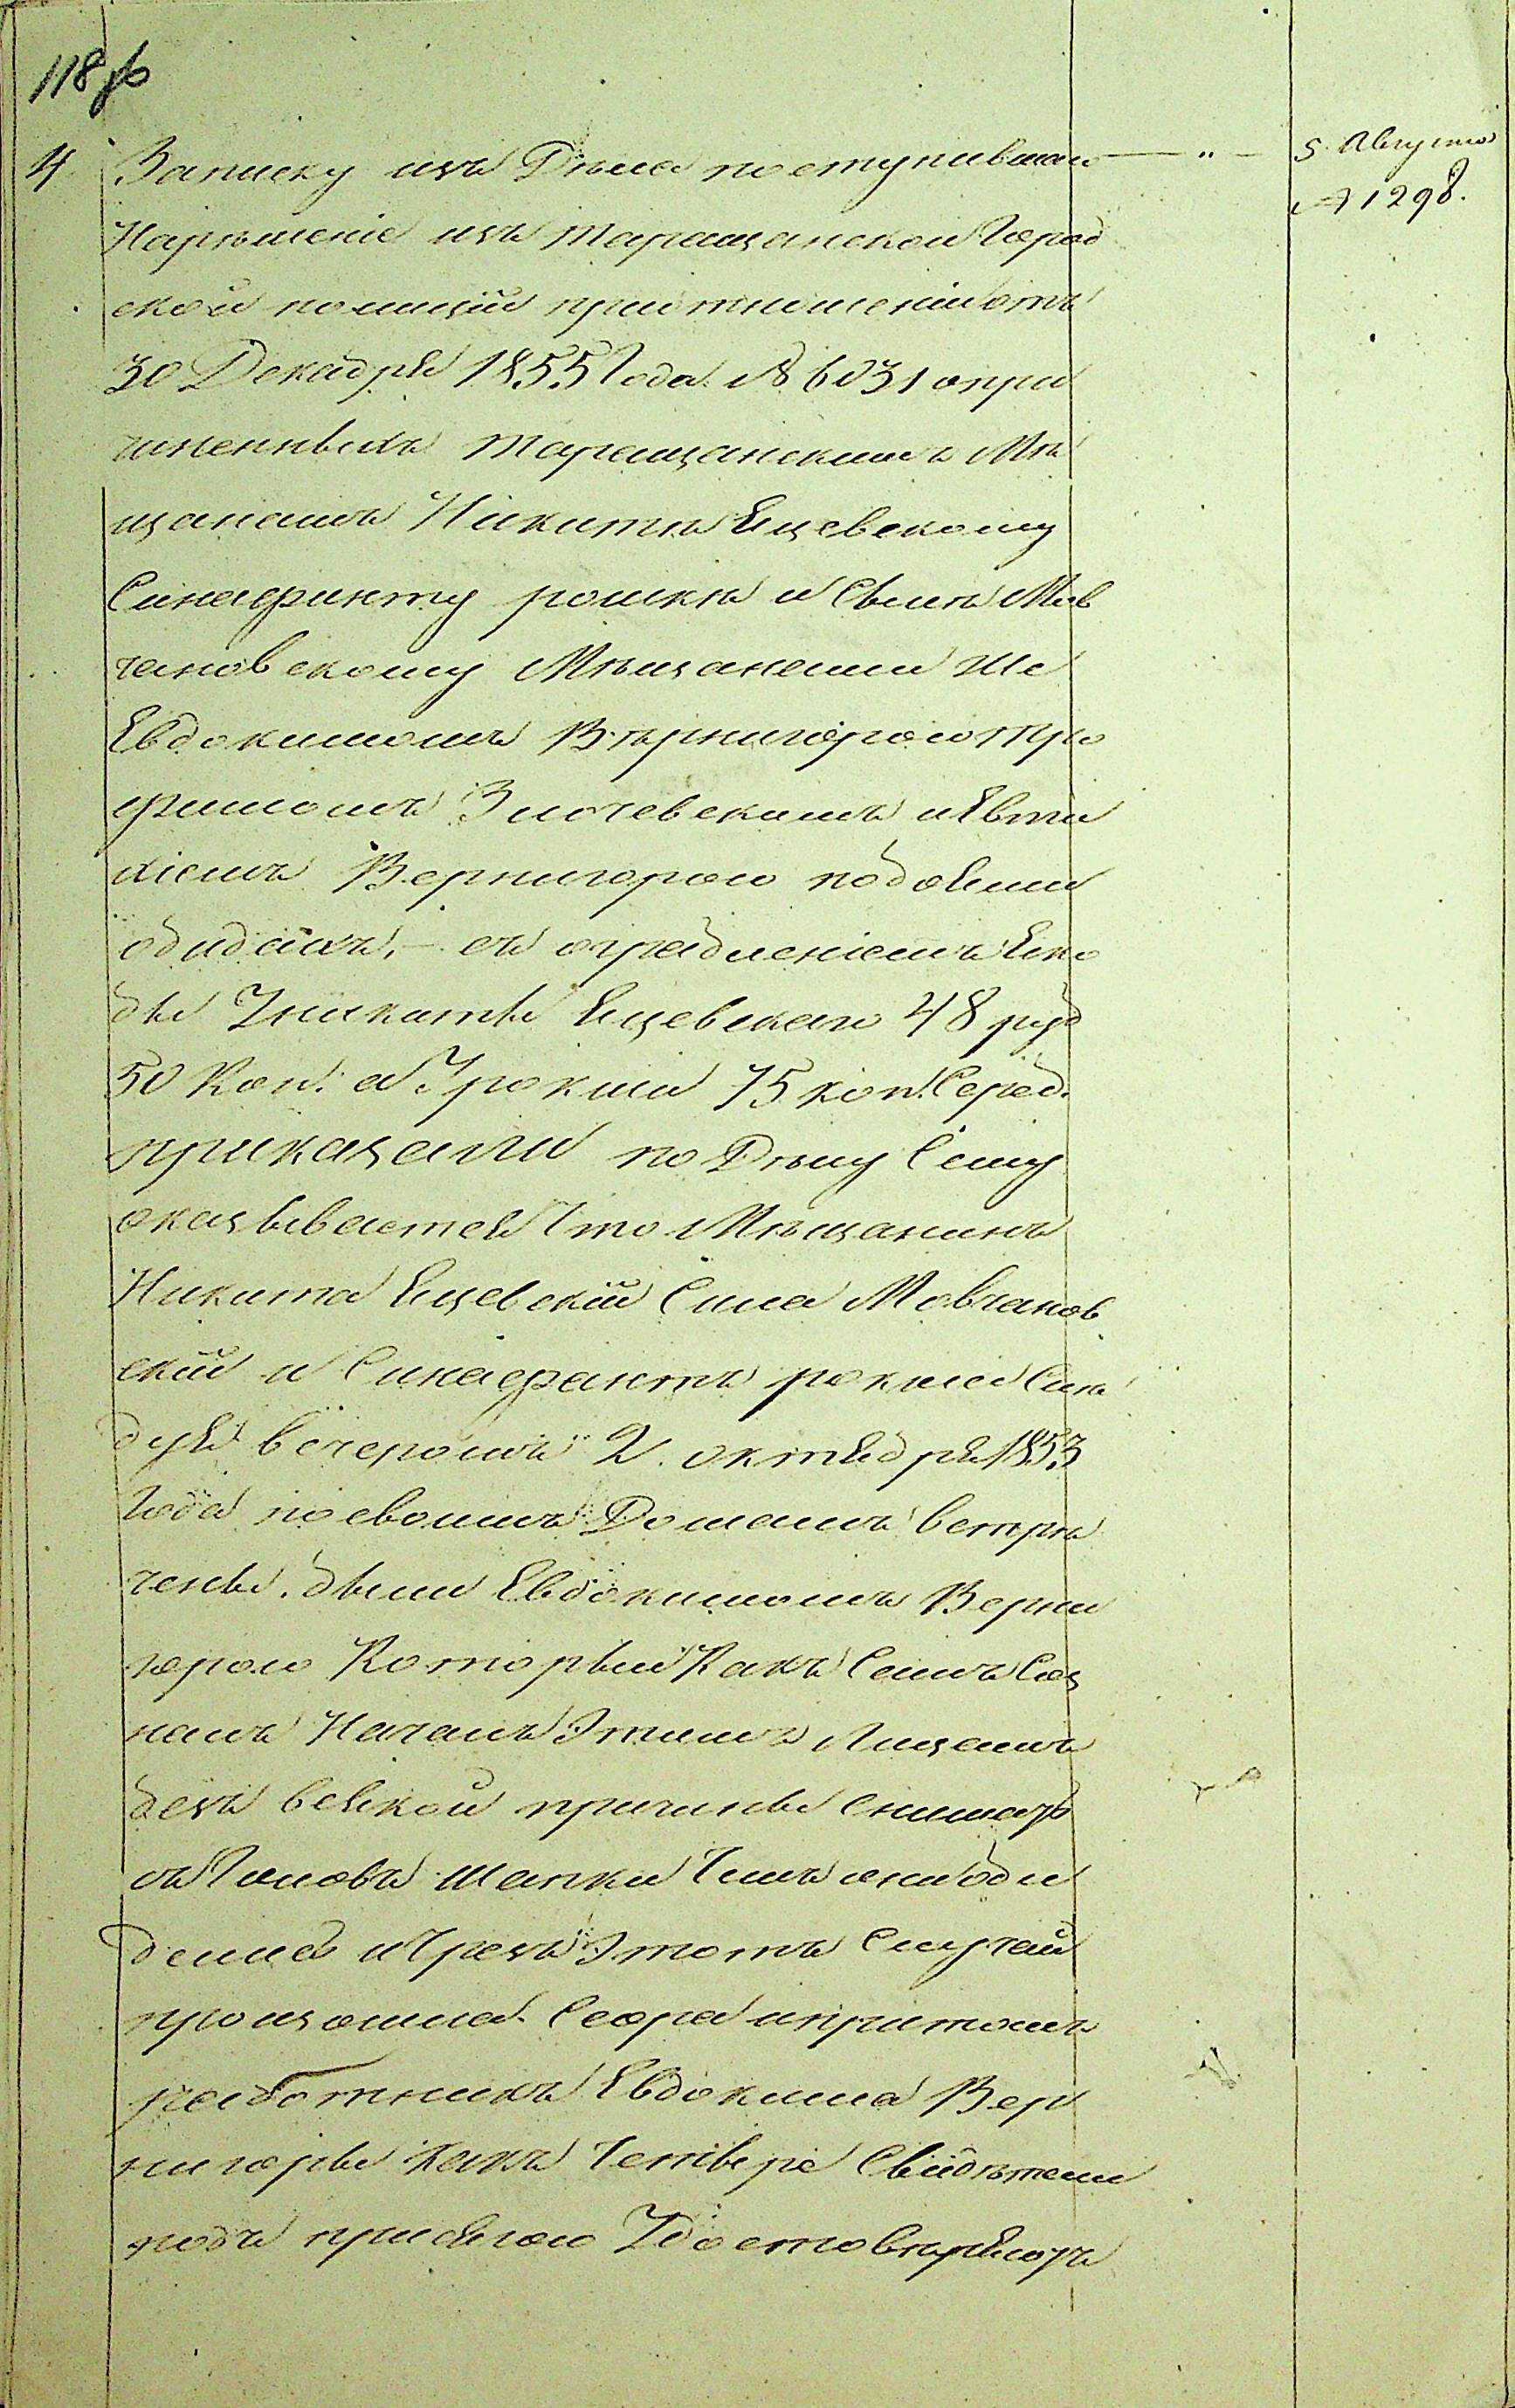 118 об
4 Записку изъ Дѣла поступившаго — „ — 5. Августа
№ 1298.
Нарѣшеніе изъ Таращанской Город
ской полиціи приотношеніи отъ
30 Декабря 1855 Года № 6031 опри
чиненныхъ Таращанскимъ Мѣ
щанамъ Никитѣ Ещевскому
Синафикту рошкѣ и Сылѣ Мов
чановскому Мѣщанами же
Евдокимомъ Вѣрнигорою Тро
фимомъ Злочевскимъ иЕвти
хіемъ Вернигорою побоями
обидахъ, — съ ограбленіемъ Яко
бы Уникиты Ещевскаго 48 руб
50 Коп: а Урокши 75 коп: Сереб.
приказали по Дѣлу Сему
оказывается Что Мѣщанинъ
Никита Ещевскій Сила Мовчанов
скій и Синафантъ рокша Слѣ
дуя вечеромъ 2. октября 1853
Года посвоимъ Домамъ встрѣ
чены были Евдокимомъ Верни
горою Который Какъ Самъ Соз
налъ Началъ Этимъ Лицамъ
безъ всякой причины Снимать
съ Головъ Шапки Чемъ они оби
делись иЧрезъ Этотъ Случай
произошла Ссора ипритомъ
работникъ Евдокима Вер
нигоры Какъ Четыре Свидѣтели
подъ присягою Удостовѣряютъ